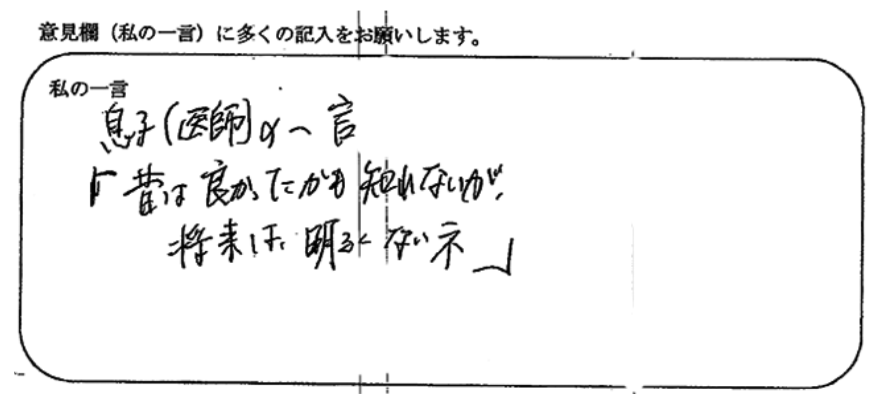 意見欄（私の一言）に多くの記入をお願いします。
私の一言
息子(医師)の一言
「昔は良かったかも知れないが、
将来は、明るくない ネ」